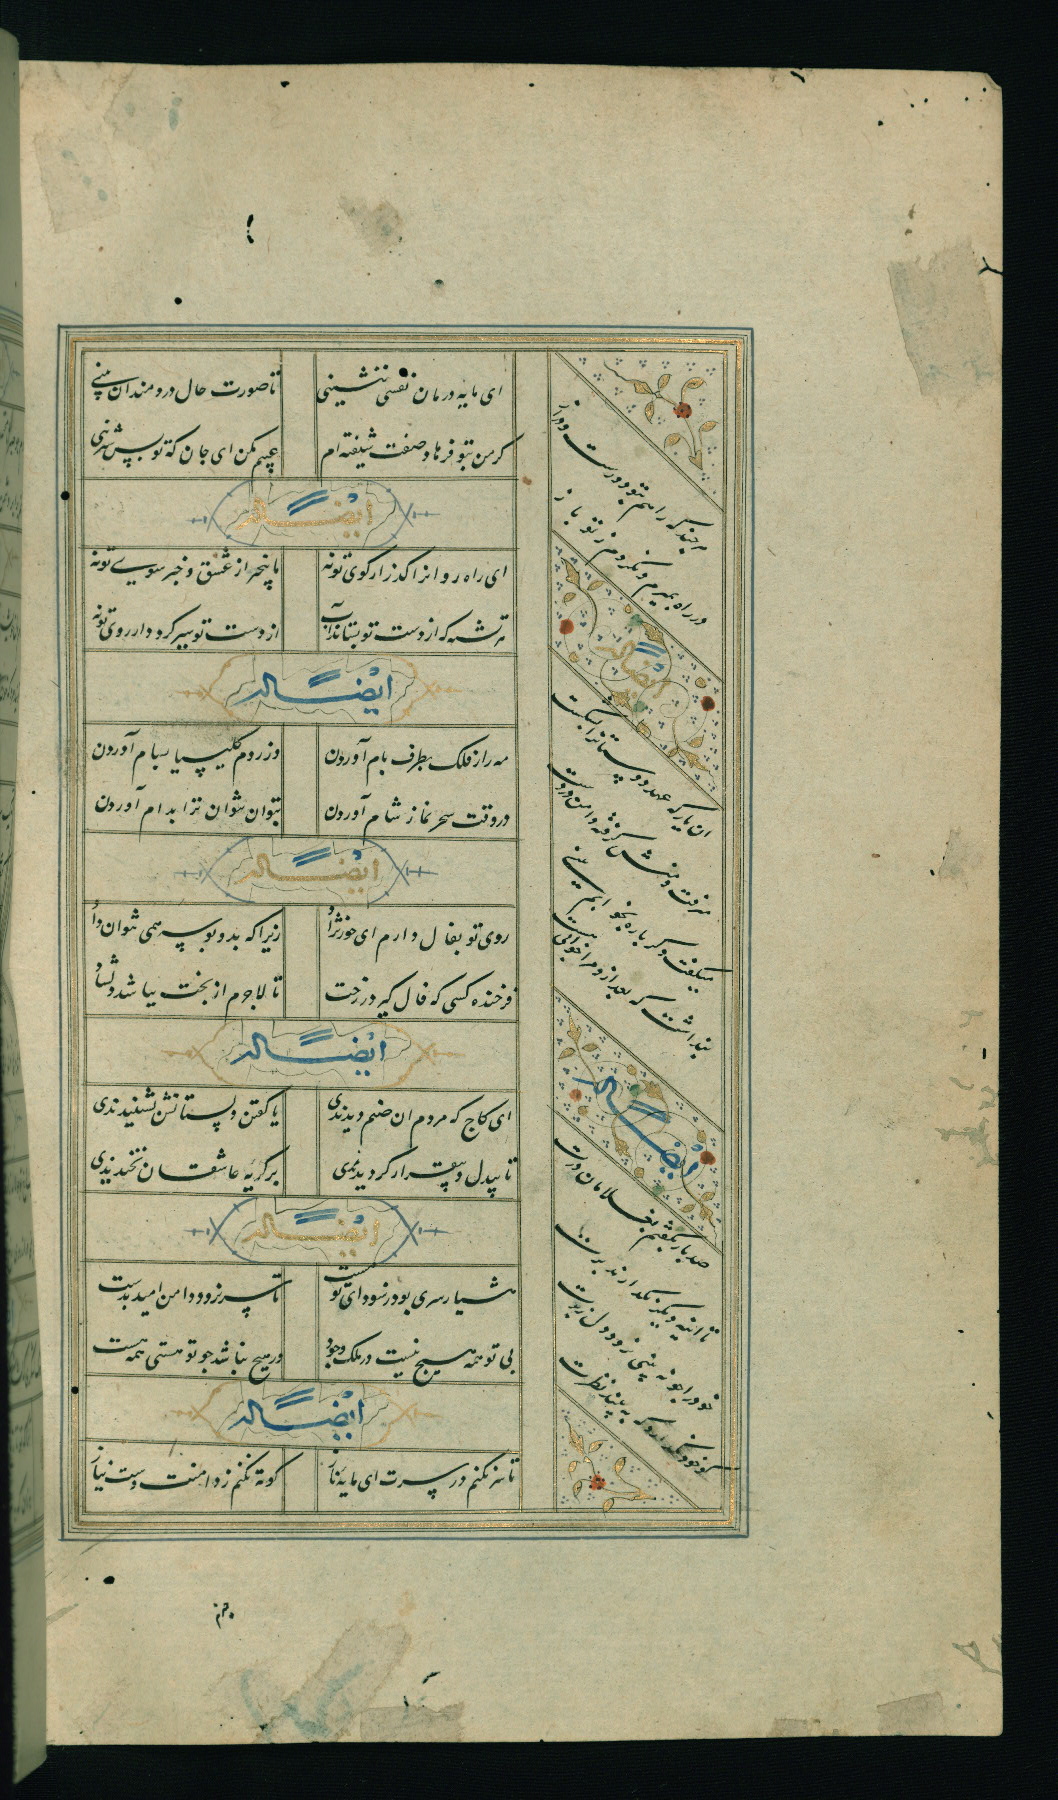 ای مایه درمان نفسی ننشینی تا صورت حال دردمندان بینی
کر من بتو فرهاد صفت شیفته ام عیبم مکن ای جان که تو بس شیرینی
ایضا له
ای راه روانرا کذر از کوی تو نه ما بیخبر از عشق و خبر سوی تو نه
هر تشنه که از دست تو بستاند آب از دست تو سیر کردد از روی تو نه
ایضا له
مه را ز فلک بطرف بام آوردن وز روم کلیسیا بشام آوردن
در وقت سحر نماز شام آوردن بتوان نتوان ترا بدام آوردن
ایضا له
روی تو بفال دارم ای حورنژاد زیرا که بدو بوسه همی نتوان داد
فرخنده کسی که فال کیرد ز رخت تا لاجرم از بخت بیاشد دلشاد
ایضا له
ای کاج که مردم آن صنم دیدندی یا کفتن دلستانش بشنیدندی
تا بیدل و بیقرار کردیدندی بر کریه عاشقان نخندیدندی
ایضا له
هشیار سری بود ز سودای تو مست تا سر نرود دامن امید بدست
بی تو همه هیچ نیست در ملک وجود ور هیچ نباشد چو تو هستی همه هست
ایضا له
تا سر نکنم در سرت ای مایه ناز کوته نکنم ز دامنت دست نیاز
هر چند که راهم بتو دورست و دراز
در راه بمیرم و نکردم ز تو باز
ایضا له
آن یار که عهد دوستانرا بشکست
میرفت و منش کرفته دامن در دست
میکفت دکر باره بخوابم بینی
پنداشت که بعد از و مرا خوابی هست
ایضا له
صد بار بکفتم بغلامان درت
تا آینه دیکر نکذارند برت
خود را چو نه بینی ز دو دل زیرت